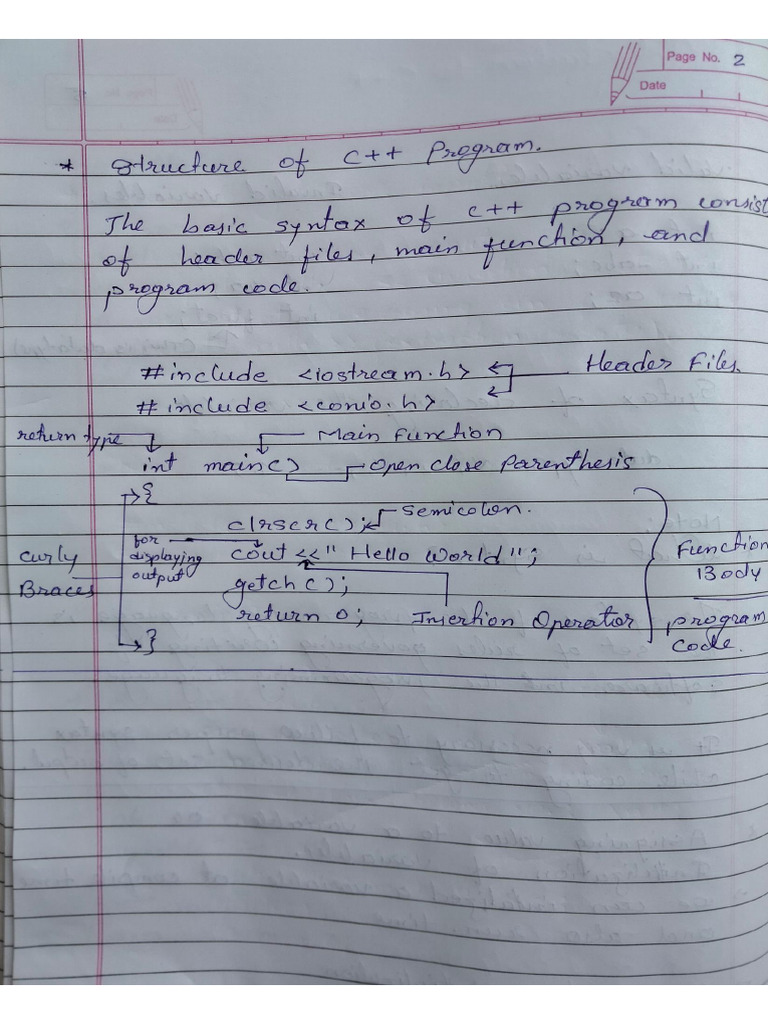 Page No. 2
Date
* Structure of C++ Program.
The basic syntax of C++ program consist
of header files, main function, and
program code.
#include <iostream.h> Header Files.
#include <conio.h>
return type Main Function
int main() Open close Parenthesis
{
clrscr(); Semicolon.
for displaying output cout<<"Hello World";
curly Braces
getch();
return 0; Insertion Operator
}
Function Body
program code.